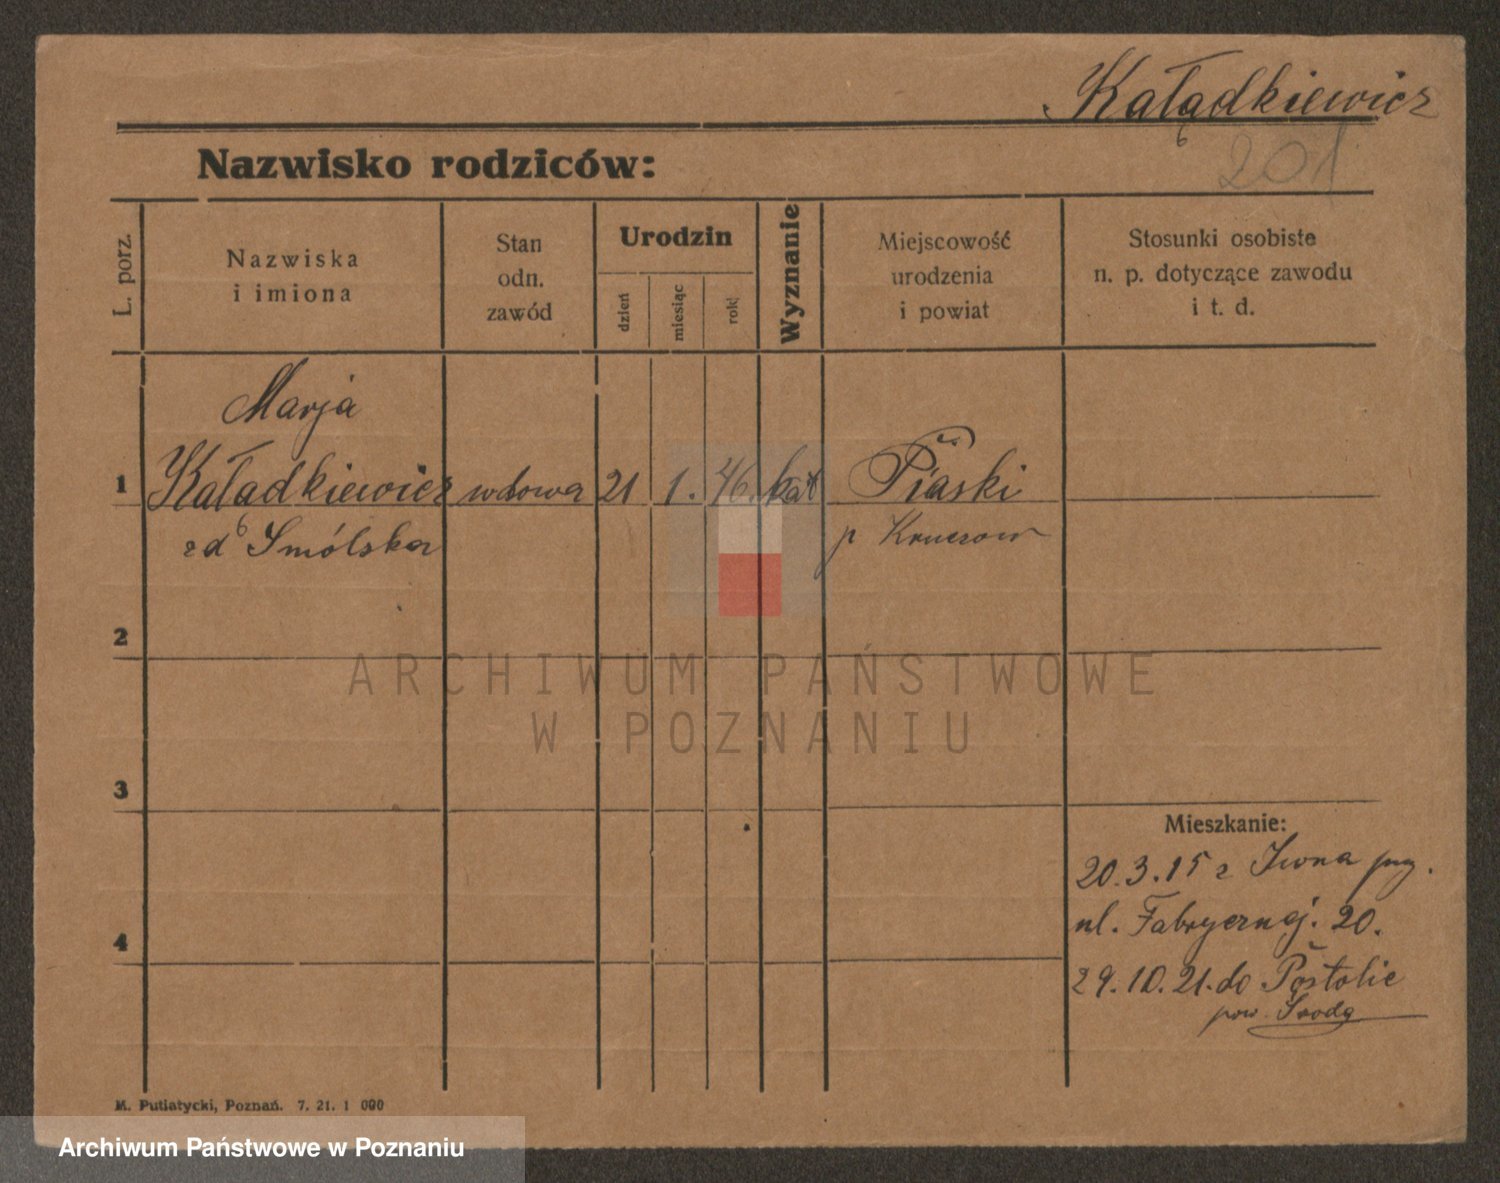 Kałądkiewicz
201
Nazwisko rodziców:
L. porz.
Nazwiska
i imiona
Stan
odn.
zawód
Urodzin
dzień
miesiąc
rok
Wyznanie
Miejscowość
urodzenia
i powiat
Stosunki osobiste
n. p. dotyczące zawodu
i t. d.
Marja
1 Kaładkiewicz wdowa 21 1. 46. kat Piaski
zd Smólska p
2
3
4
Mieszkanie:
20.3.15 z Iwna
ul. Fabrycznej. 20.
29.10.21. do
pow. Środa
M. Putiatycki, Poznań. 7. 21. 1 000
ARCHIWUM PAŃSTWOWE
W POZNANIU
Archiwum Państwowe w Poznaniu